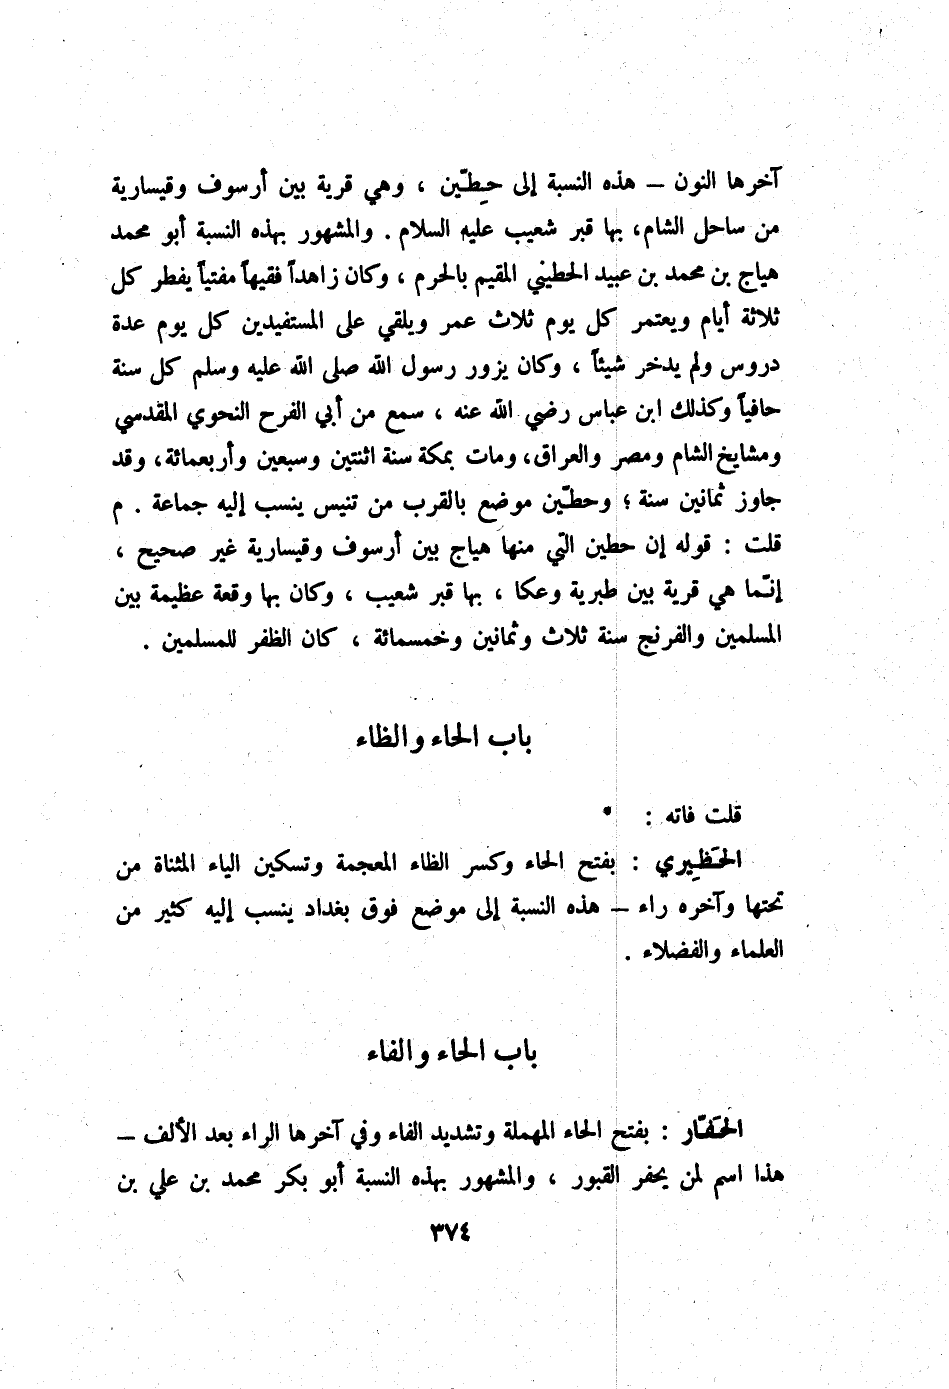 آخرها النون – هذه النسبة إلى حِطّين ، وهي قرية بين أرسوف وقيسارية
من ساحل الشام، بها قبر شعيب عليه السلام . والمشهور بهذه النسبة أبو محمد
هياج بن محمد بن عبيد الحطيني المقيم بالحرم ، وكان زاهداً فقيهاً مفتياً يفطر كل
ثلاثة أيام ويعتمر كل يوم ثلاث عمر ويلقي على المستفيدين كل يوم عدة
دروس ولم يدخر شيئاً ، وكان يزور رسول الله صلى الله عليه وسلم كل سنة
حافياً وكذلك ابن عباس رضي الله عنه ، سمع من أبي الفرح النحوي المقدسي
ومشايخ الشام ومصر والعراق، ومات بمكة سنة اثنتين وسبعين وأربعمائة، وقد
جاوز ثمانين سنة ؛ وحطّين موضع بالقرب من تنيس ينسب إليه جماعة . م
قلت : قوله إن حطين التي منها هياج بين أرسوف وقيسارية غير صحيح ،
إنّما هي قرية بين طبرية وعكا ، بها قبر شعيب ، وكان بها وقعة عظيمة بين
المسلمين والفرنج سنة ثلاث وثمانين وخمسمائة ، كان الظفر للمسلمين .
باب الحاء والظاء
قلت فاته : *
الحَظِيري : بفتح الحاء وكسر الظاء المعجمة وتسكين الياء المثناة من
تحتها وآخره راء – هذه النسبة إلى موضع فوق بغداد ينسب إليه كثير من
العلماء والفضلاء .
باب الحاء والفاء
الحَفّار : بفتح الحاء المهملة وتشديد الفاء وفي آخرها الراء بعد الألف –
هذا اسم لمن يحفر القبور ، والمشهور بهذه النسبة أبو بكر محمد بن علي بن
٣٧٤